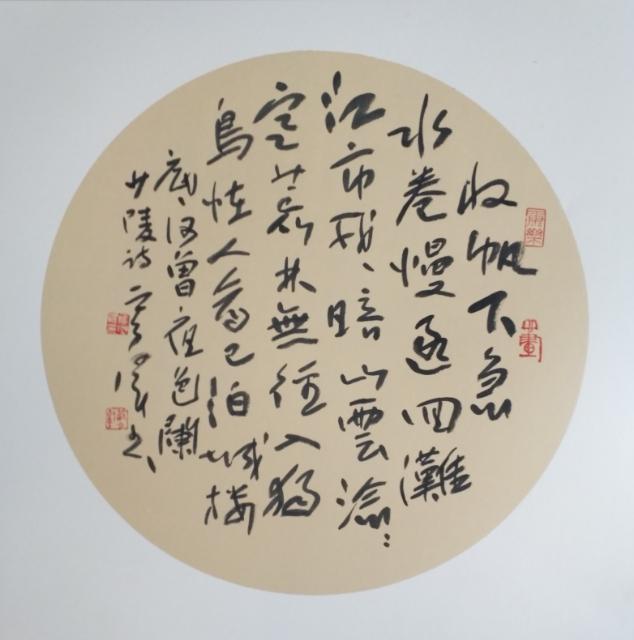 收帆下急
水卷慢逐回灘
江市戎、暗山雲淰:
寒荒林無徑入獨
鳥怪人看已泊城楼
底何曾夜色闌
少陵詩 书